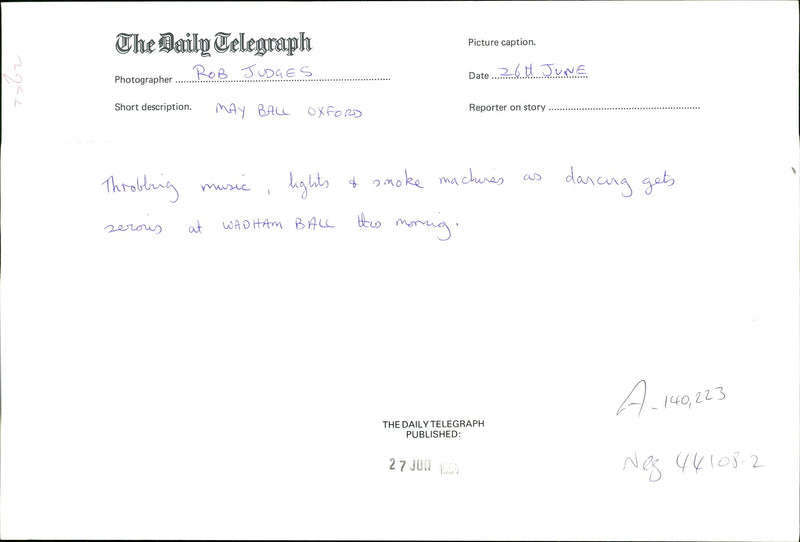 The Daily Telegraph
Picture caption.
Photographer ROB JUDGES
Date 26th JUNE
Short description. MAY BALL OXFORD
Reporter on story
Throbbing music, lights & smoke machines as dancing gets
serious at WADHAM BALL this morning.
A-140,223
THE DAILY TELEGRAPH
PUBLISHED:
27 JUN
Neg 44108.2